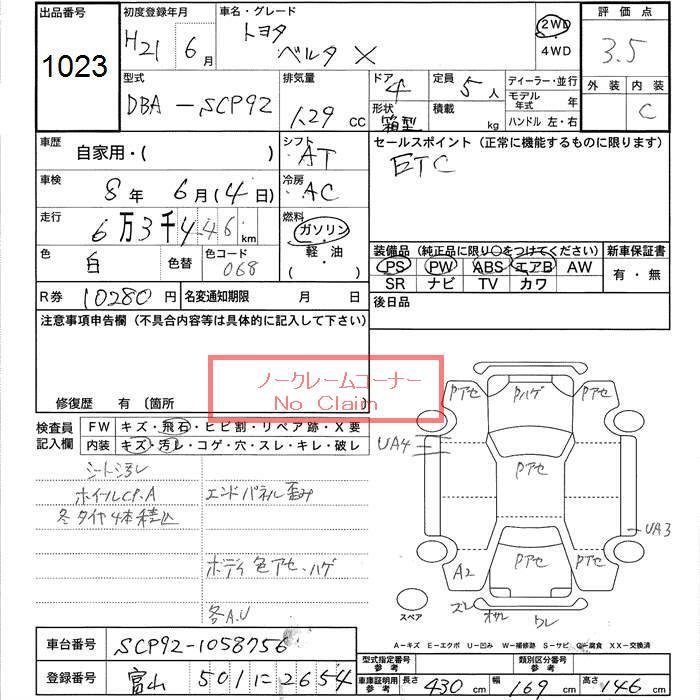 出品番号 初度登録年月 車名・グレード 評価点
1023 H21 6月 トヨタ ベルタ X 2WD 4WD 3.5
型式 排気量 ドア 4 定員 5人 ディーラー・並行 外装 内装
DBA-SCP92 1.29 CC 形状 箱型 積載 kg モデル年式 年 C
ハンドル 左・右
車歴 自家用・( ) シフト AT セールスポイント(正常に機能するものに限ります)
車検 8年 6月(4日) 冷房 AC ETC
走行 6万3千446km 燃料 ガソリン
色 白 色替 色コード 068 軽・油 ・( )
装備品(純正品に限り○をつけてください) 新車保証書
PS PW ABS エアB AW 有・無
SR ナビ TV カワ
R券 10280円 名変通知期限 月 日 後日品
注意事項申告欄(不具合内容等は具体的に記入して下さい)
ノークレームコーナー
No Claim
修復歴 有 〔箇所
検査員記入欄 FW キズ・飛石・ヒビ割・リペア跡・X要
内装 キズ・汚レ・コゲ・穴・スレ・キレ・破レ
シートシミレ
ホイールCP.A エンドパネル歪み
冬タイヤ4本積込
ボディ色アセ、ハゲ
各A.U
Pアセ Pハゲ Pアセ
UA4
Pアセ
UA3
A2 Pアセ Pアセ
スレ オサレ ワレ
スペア
A-キズ E-エクボ U-凹み W-補修跡 S-サビ C-腐食 XX-交換済
車台番号 SCP92-1058756 型式指定番号 参考 類別区分番号 参考
登録番号 富山 501 に 2654 車庫証明用 参考 長さ 430cm 幅 169cm 高さ 146cm